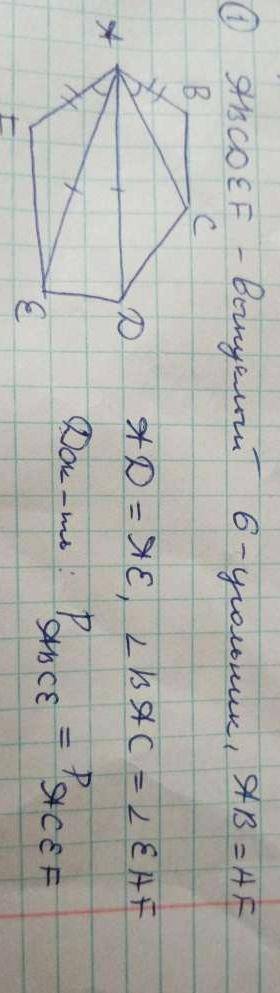 ① ABCDEF - выпуклый 6-угольник, AB = AF
AD = AE, ∠BAC = ∠EAF
Док-ть: P ABCE = P ACEF
A
B
C
D
E
F